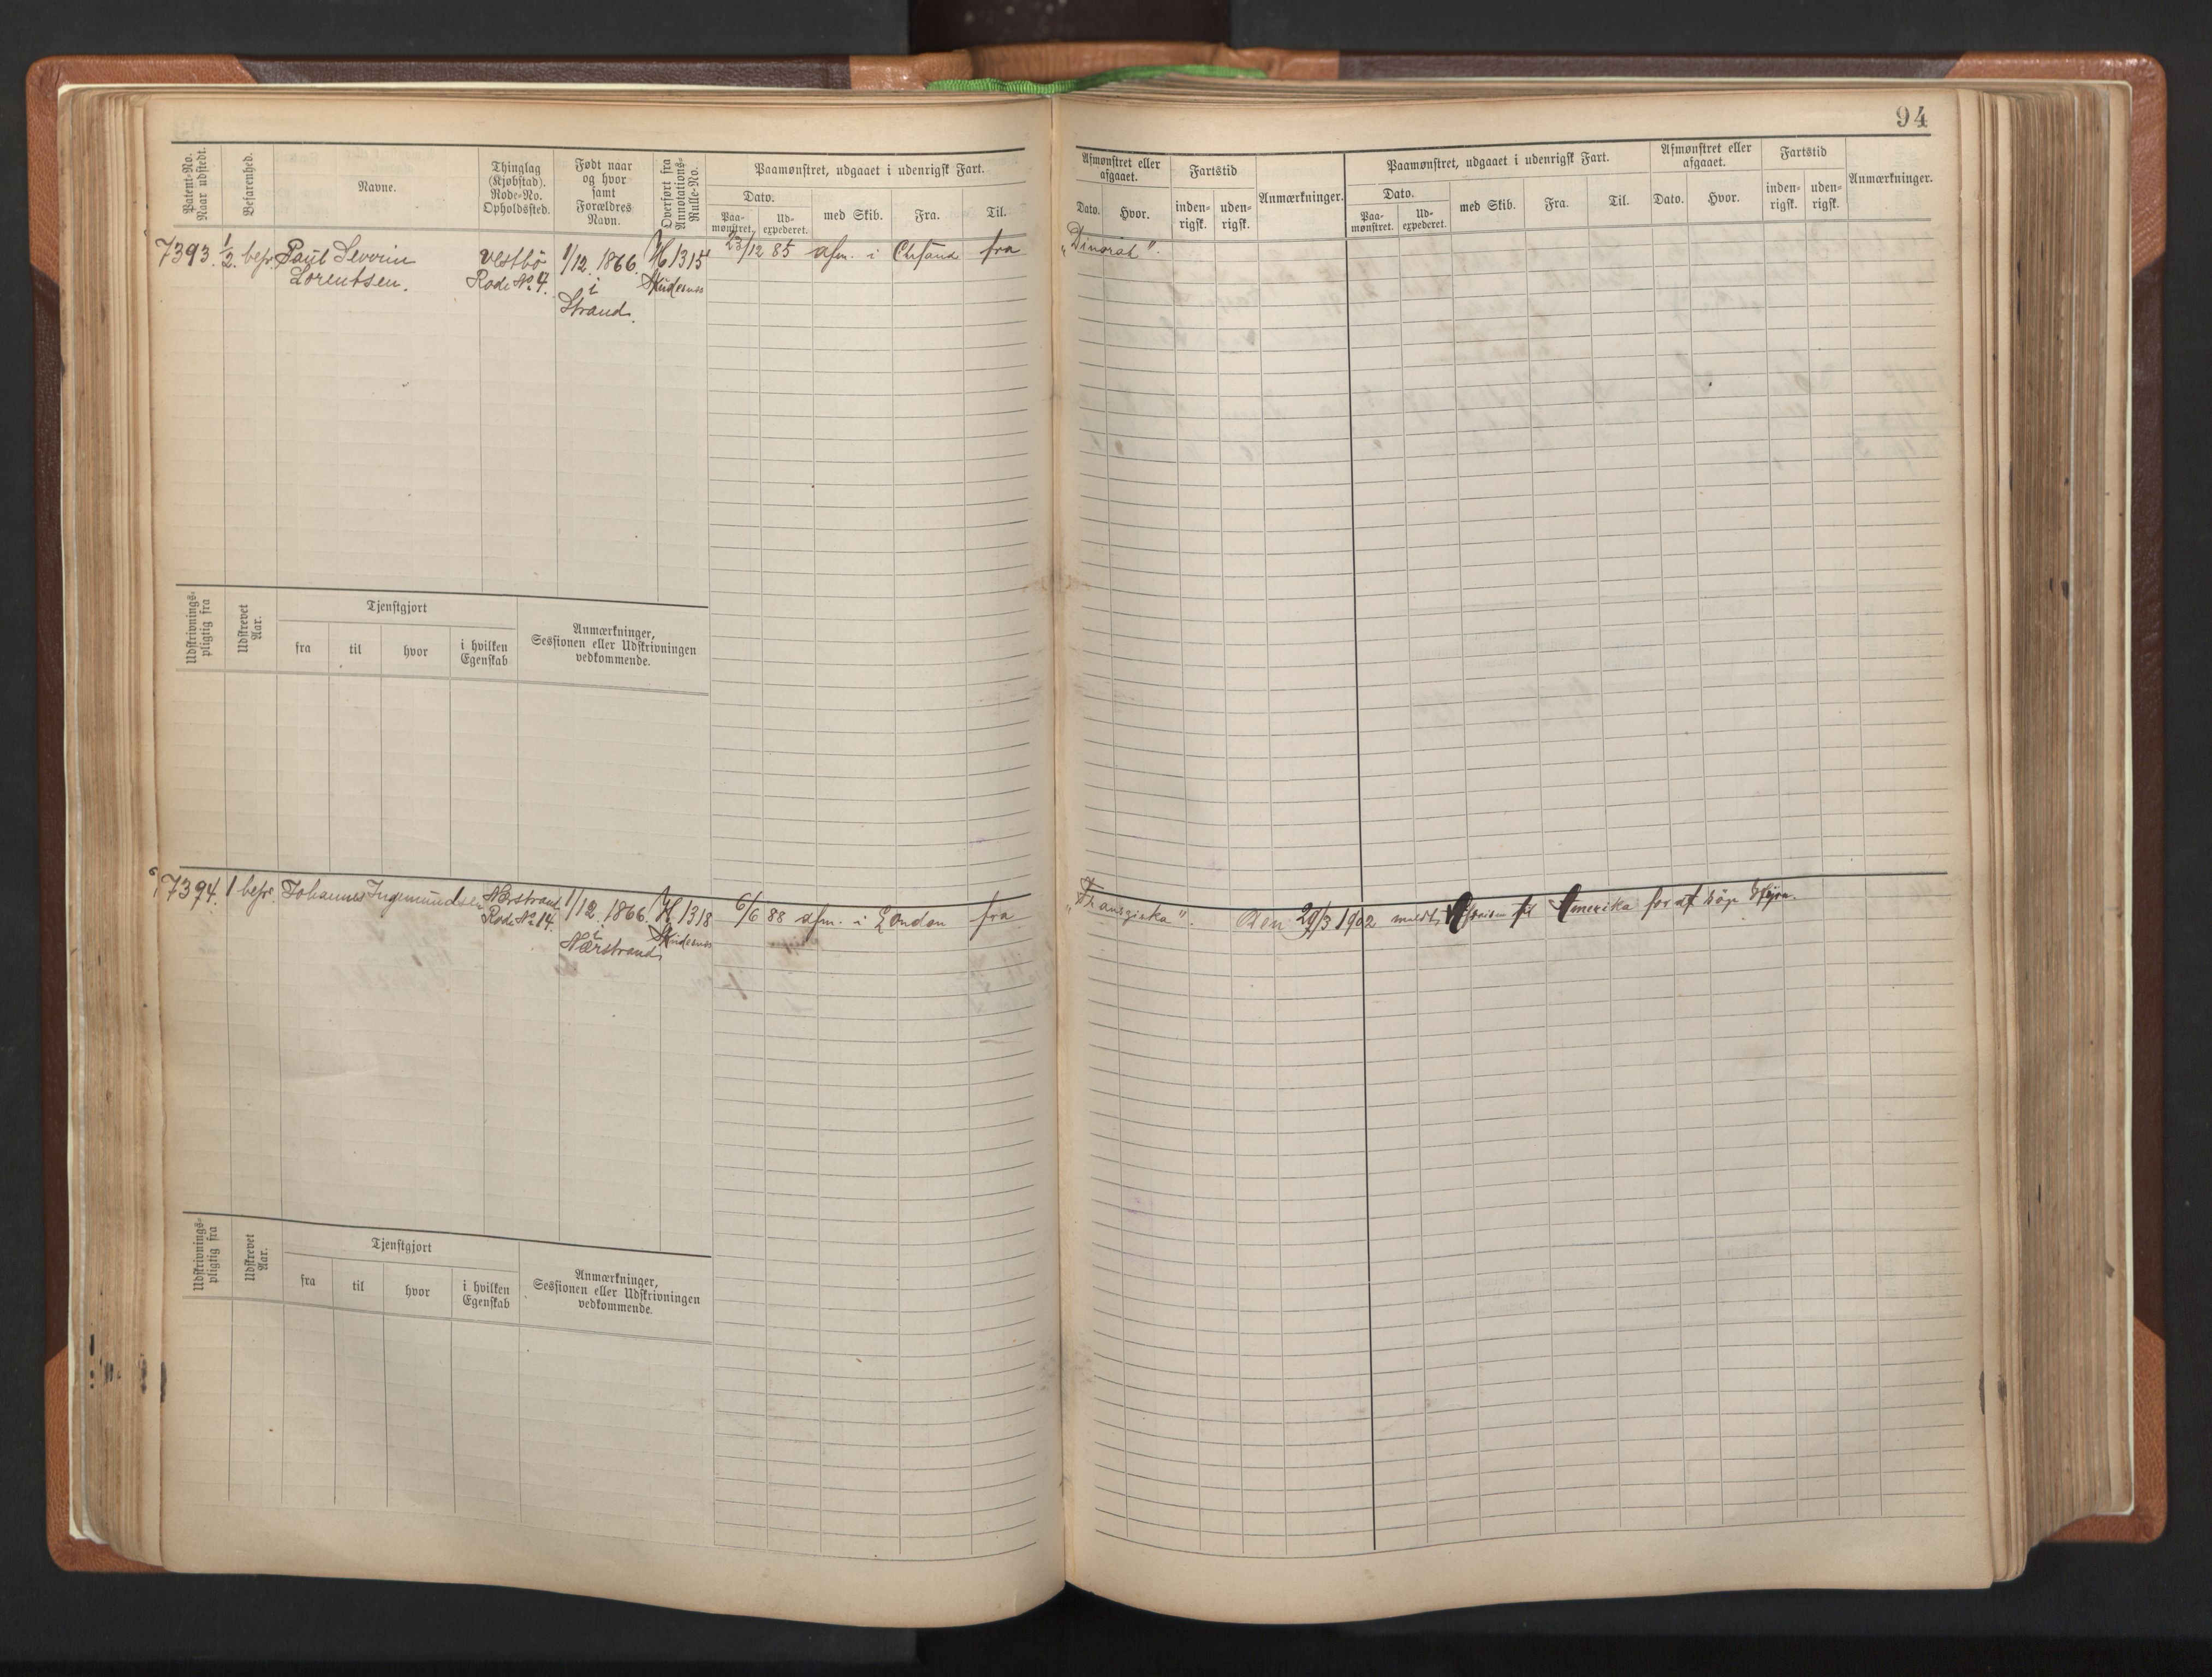 94
Patent-No. Naar udstedt.
Befarenhed.
Navne.
Thinglag (Kjøbstad). Rode-No. Opholdssted.
Født naar og hvor samt Forældres Navn.
Overført fra Annotations-Rulle-No.
Paamønstret, udgaaet i udenrigsk Fart.
Dato.
Paa-mønstret.
Ud-expederet.
med Skib.
Fra.
Til.
Afmønstret eller afgaaet.
Dato.
Hvor.
Fartstid
inden-rigsk.
uden-rigsk.
Anmærkninger.
Paamønstret, udgaaet i udenrigsk Fart.
Dato.
Paa-mønstret.
Ud-expederet.
med Skib.
Fra.
Til.
Afmønstret eller afgaaet.
Dato.
Hvor.
Fartstid
inden-rigsk.
uden-rigsk.
Anmærkninger.
7393. 1/2 befr. Paul Severin Vestbö 1/12. 1866. 1315 23/12 85 afm. i Chrsand fra „Dinorah".
Lorentsen. Rode No. 4. i Skudesnes
Strand.
Udskrivnings-pligtig fra
Udskrevet Aar.
Tjenstgjort
fra
til
hvor
i hvilken Egenskab
Anmærkninger,
Sessionen eller Udskrivningen
vedkommende.
7394. 1 befr. Johannes Ingemundsen Nærstrand 1/12. 1866. 1318 6/6 88 afm. i London fra „Franziska". Den 29/3 1902 meldt Afreisen til Amerika for at söge Hyre.
Rode No. 14. i Skudesnes
Nærstrand
Udskrivnings-pligtig fra
Udskrevet Aar.
Tjenstgjort
fra
til
hvor
i hvilken Egenskab
Anmærkninger,
Sessionen eller Udskrivningen
vedkommende.